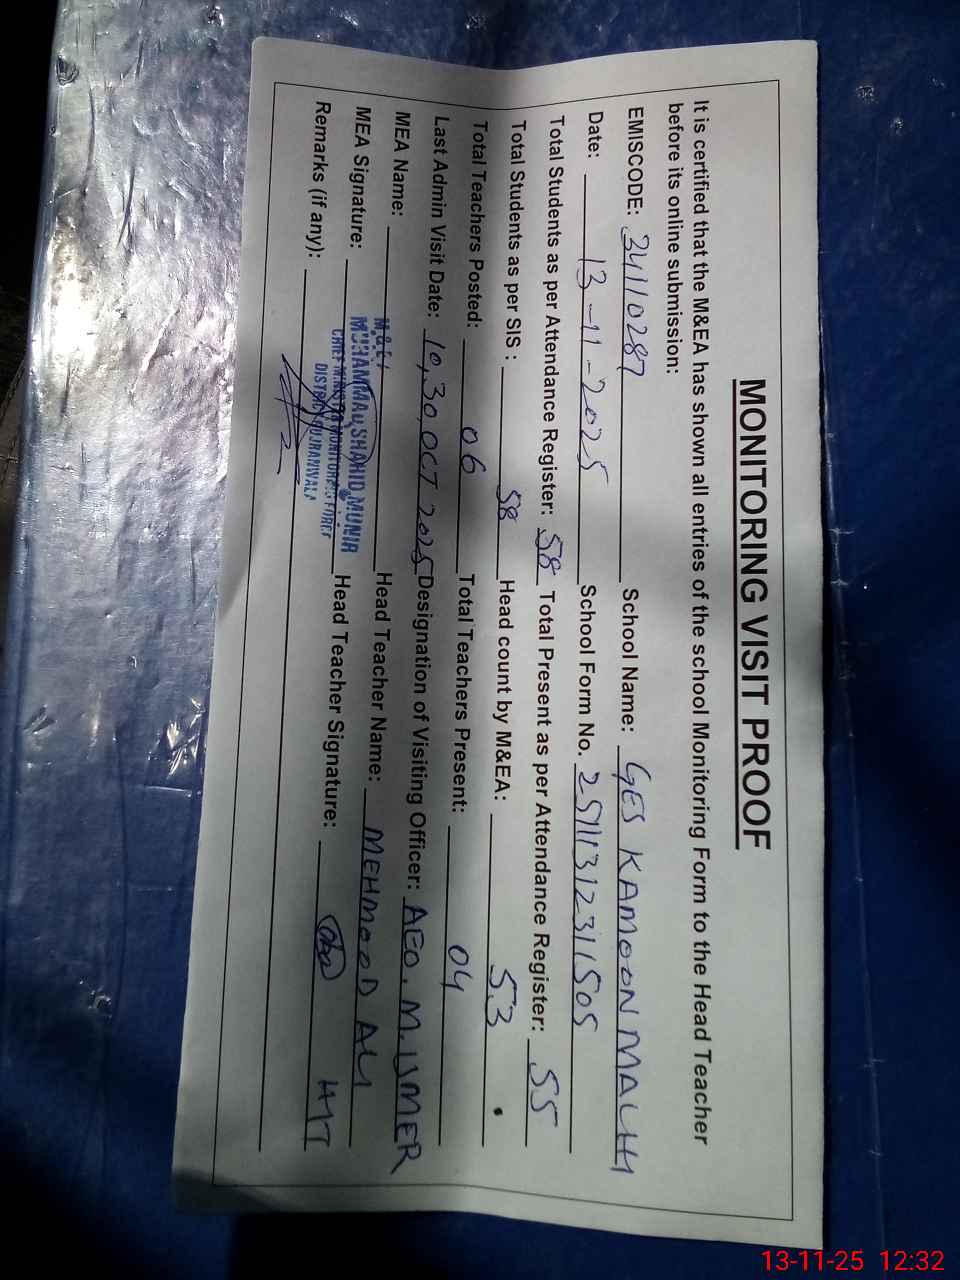 MONITORING VISIT PROOF
It is certified that the M&EA has shown all entries of the school Monitoring Form to the Head Teacher
before its online submission:
EMISCODE: 34110287 School Name: GES KAMOON MALHI
Date: 13-11-2025 School Form No. 25111312311505
Total Students as per Attendance Register: 58 Total Present as per Attendance Register: 55
Total Students as per SIS : 58 Head count by M&EA: 53
Total Teachers Posted: 06 Total Teachers Present: 04
Last Admin Visit Date: 10,30,OCT 2025 Designation of Visiting Officer: AEO. M. UMER
MEA Name: Head Teacher Name: MEHMOOD ALI
MUHAMMAD SHAHID MUNIR
MEA Signature: Head Teacher Signature: HT
CHIEF MINISTER MONITORING FORCE
DISTRICT GUJRANWALA
Remarks (if any):
13-11-25 12:32